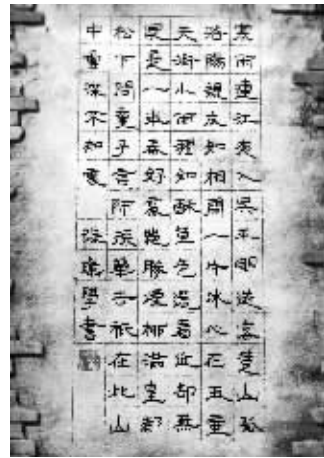 寒雨連江夜入吳平明送客楚山孤
洛陽親友如相問一片冰心在玉壺
天街小雨潤如酥草色遙看近卻無
最是一年春好處絕勝煙柳滿皇都
松下問童子言師採藥去祇在此山
中雲深不知處
學書